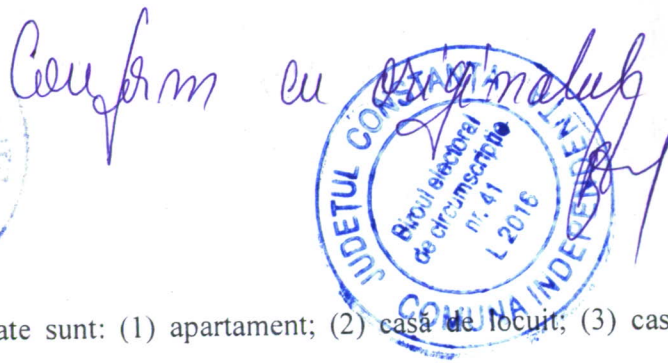 Conform cu originalul
JUDEŢUL CONSTANŢA
COMUNA INDEPENDENŢA
Biroul electoral
de circumscripţie
nr. 41
L 2016
ate sunt: (1) apartament; (2) casă de locuit; (3) cas